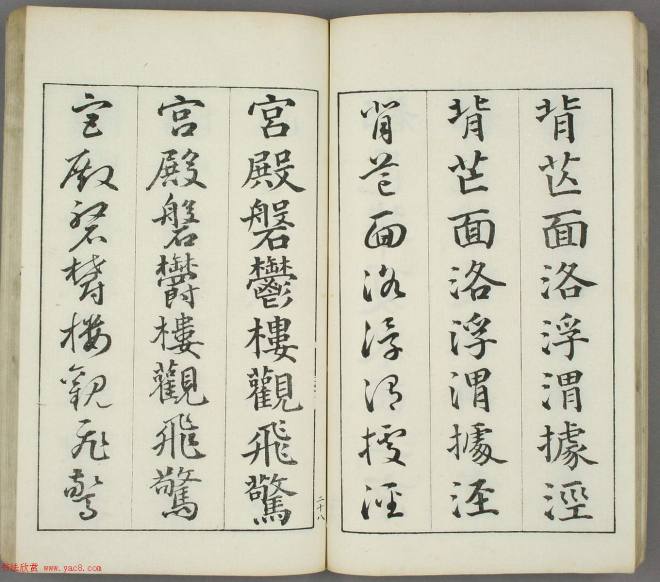 背芒面洛浮渭據涇
背芒面洛浮渭據涇
背芒面洛浮渭據涇
宮殿磐鬱樓觀飛驚
宮殿磐欝樓觀飛驚
宮殿磐欝樓觀飛驚
二十八
书法欣赏 www.yac8.com